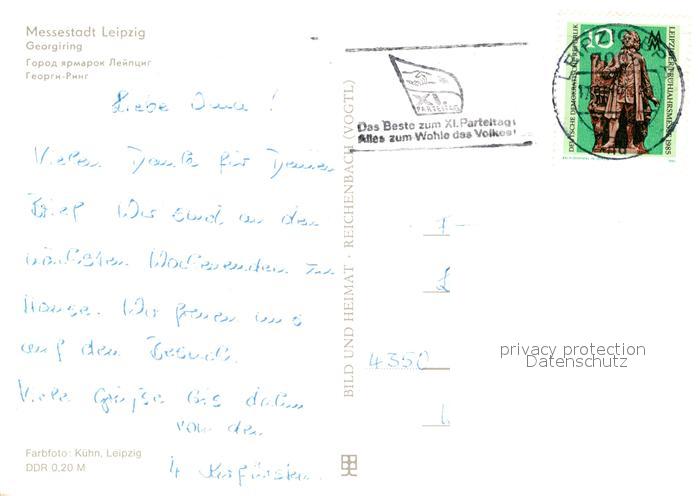 Messestadt Leipzig
Georgiring
Город ярмарок Лейпциг
Георги-Ринг
Liebe Oma!
Vielen Dank für Deinen
Brief. Wir sind an den
nächsten Wochenenden zu
Hause. Wir freuen uns
auf den Besuch.
Viele Grüße bis dahin
von den
4
Farbfoto: Kühn, Leipzig
DDR 0,20 M
BILD UND HEIMAT · REICHENBACH (VOGTL)
XI.
PARTEITAG
Das Beste zum XI. Parteitag!
Alles zum Wohle des Volkes!
10
DEUTSCHE DEMOKRATISCHE REPUBLIK
LEIPZIGER FRÜHJAHRSMESSE 1985
LEIPZIG
4350
privacy protection
Datenschutz